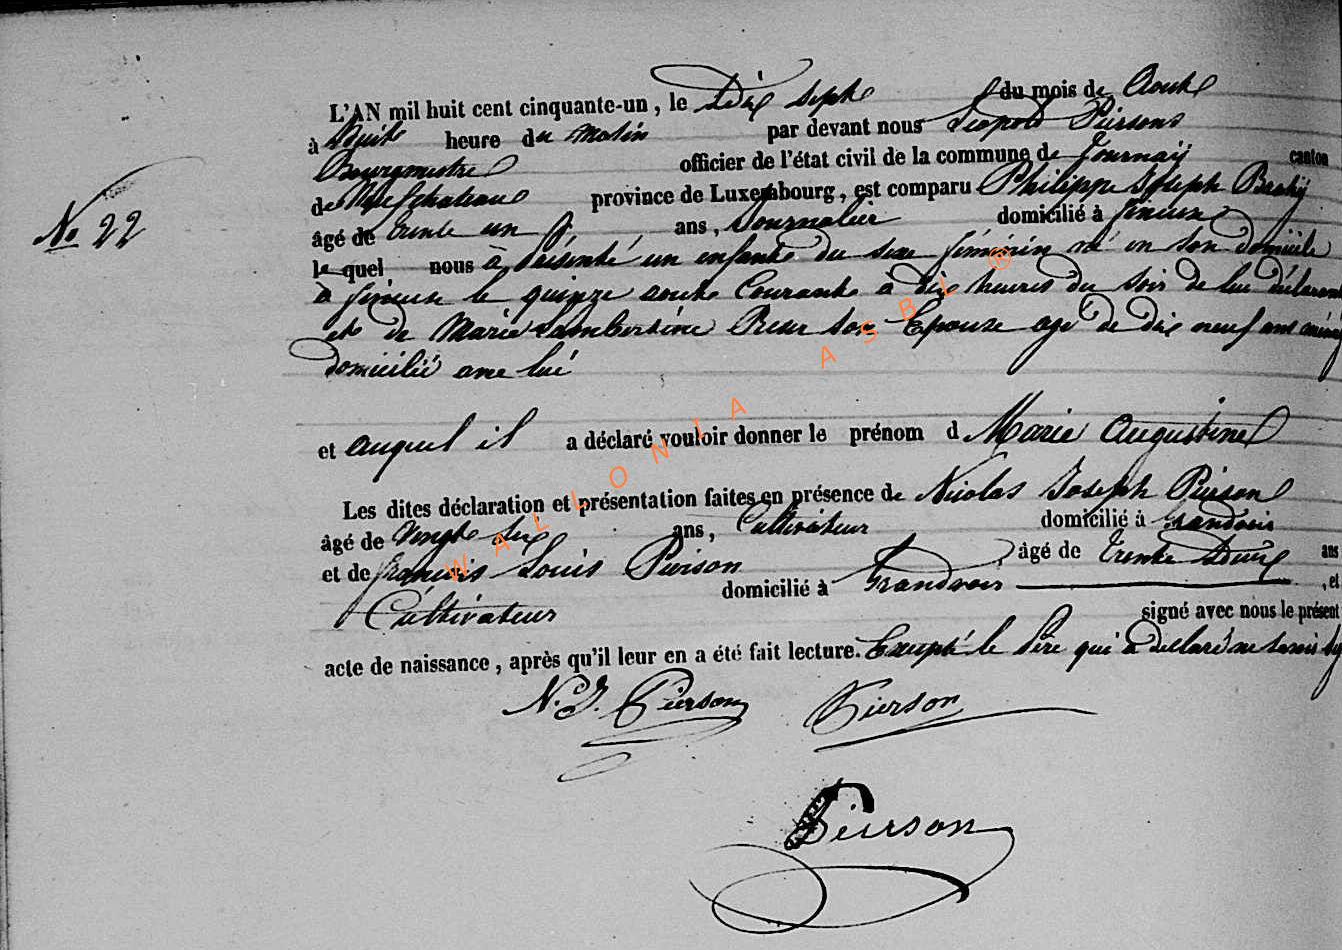 L'AN mil huit cent cinquante-un, le Dix Sept du mois de Aout
à Huit heure du Matin par devant nous Leopold Piersons
Bourgmestre officier de l'état civil de la commune de Tournay canton
de Neufchateau province de Luxembourg, est comparu Philippe Joseph
âgé de trente un ans, Journalier domicilié à
No 22
le quel nous à Présenté un enfant du sexe féminin né en son domicile
à le quinze aout Courant à dix heures du Soir de lui déclarant
et de Marie Lambertine son Epouse agé de dix neuf ans
domicilié avec lui
et auquel il a déclaré vouloir donner le prénom d Marie Augustine
Les dites déclaration et présentation faites en présence de Nicolas Joseph Pierson
âgé de Vengt Six ans, Cultivateur domicilié à Grandvoir
et de francois Louis Pierson âgé de Trente Deux ans
Cultivateur domicilié à Grandvoir , et
signé avec nous le présent
acte de naissance, après qu'il leur en a été fait lecture. Excepté le Père qui à déclaré ne savoir
N. J. Pierson Pierson
Pierson
WALLONIA ASBL ®